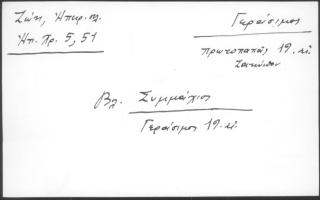 Ζώη, Ηπειρ. μ.
Ηπ. Χρ. 5, 51
Γεράσιμος
πρωτοπαπᾶς 19. αἰ.
Ζακύνθου
Βλ. Συμμάχιος
Γεράσιμος 19. αἰ.